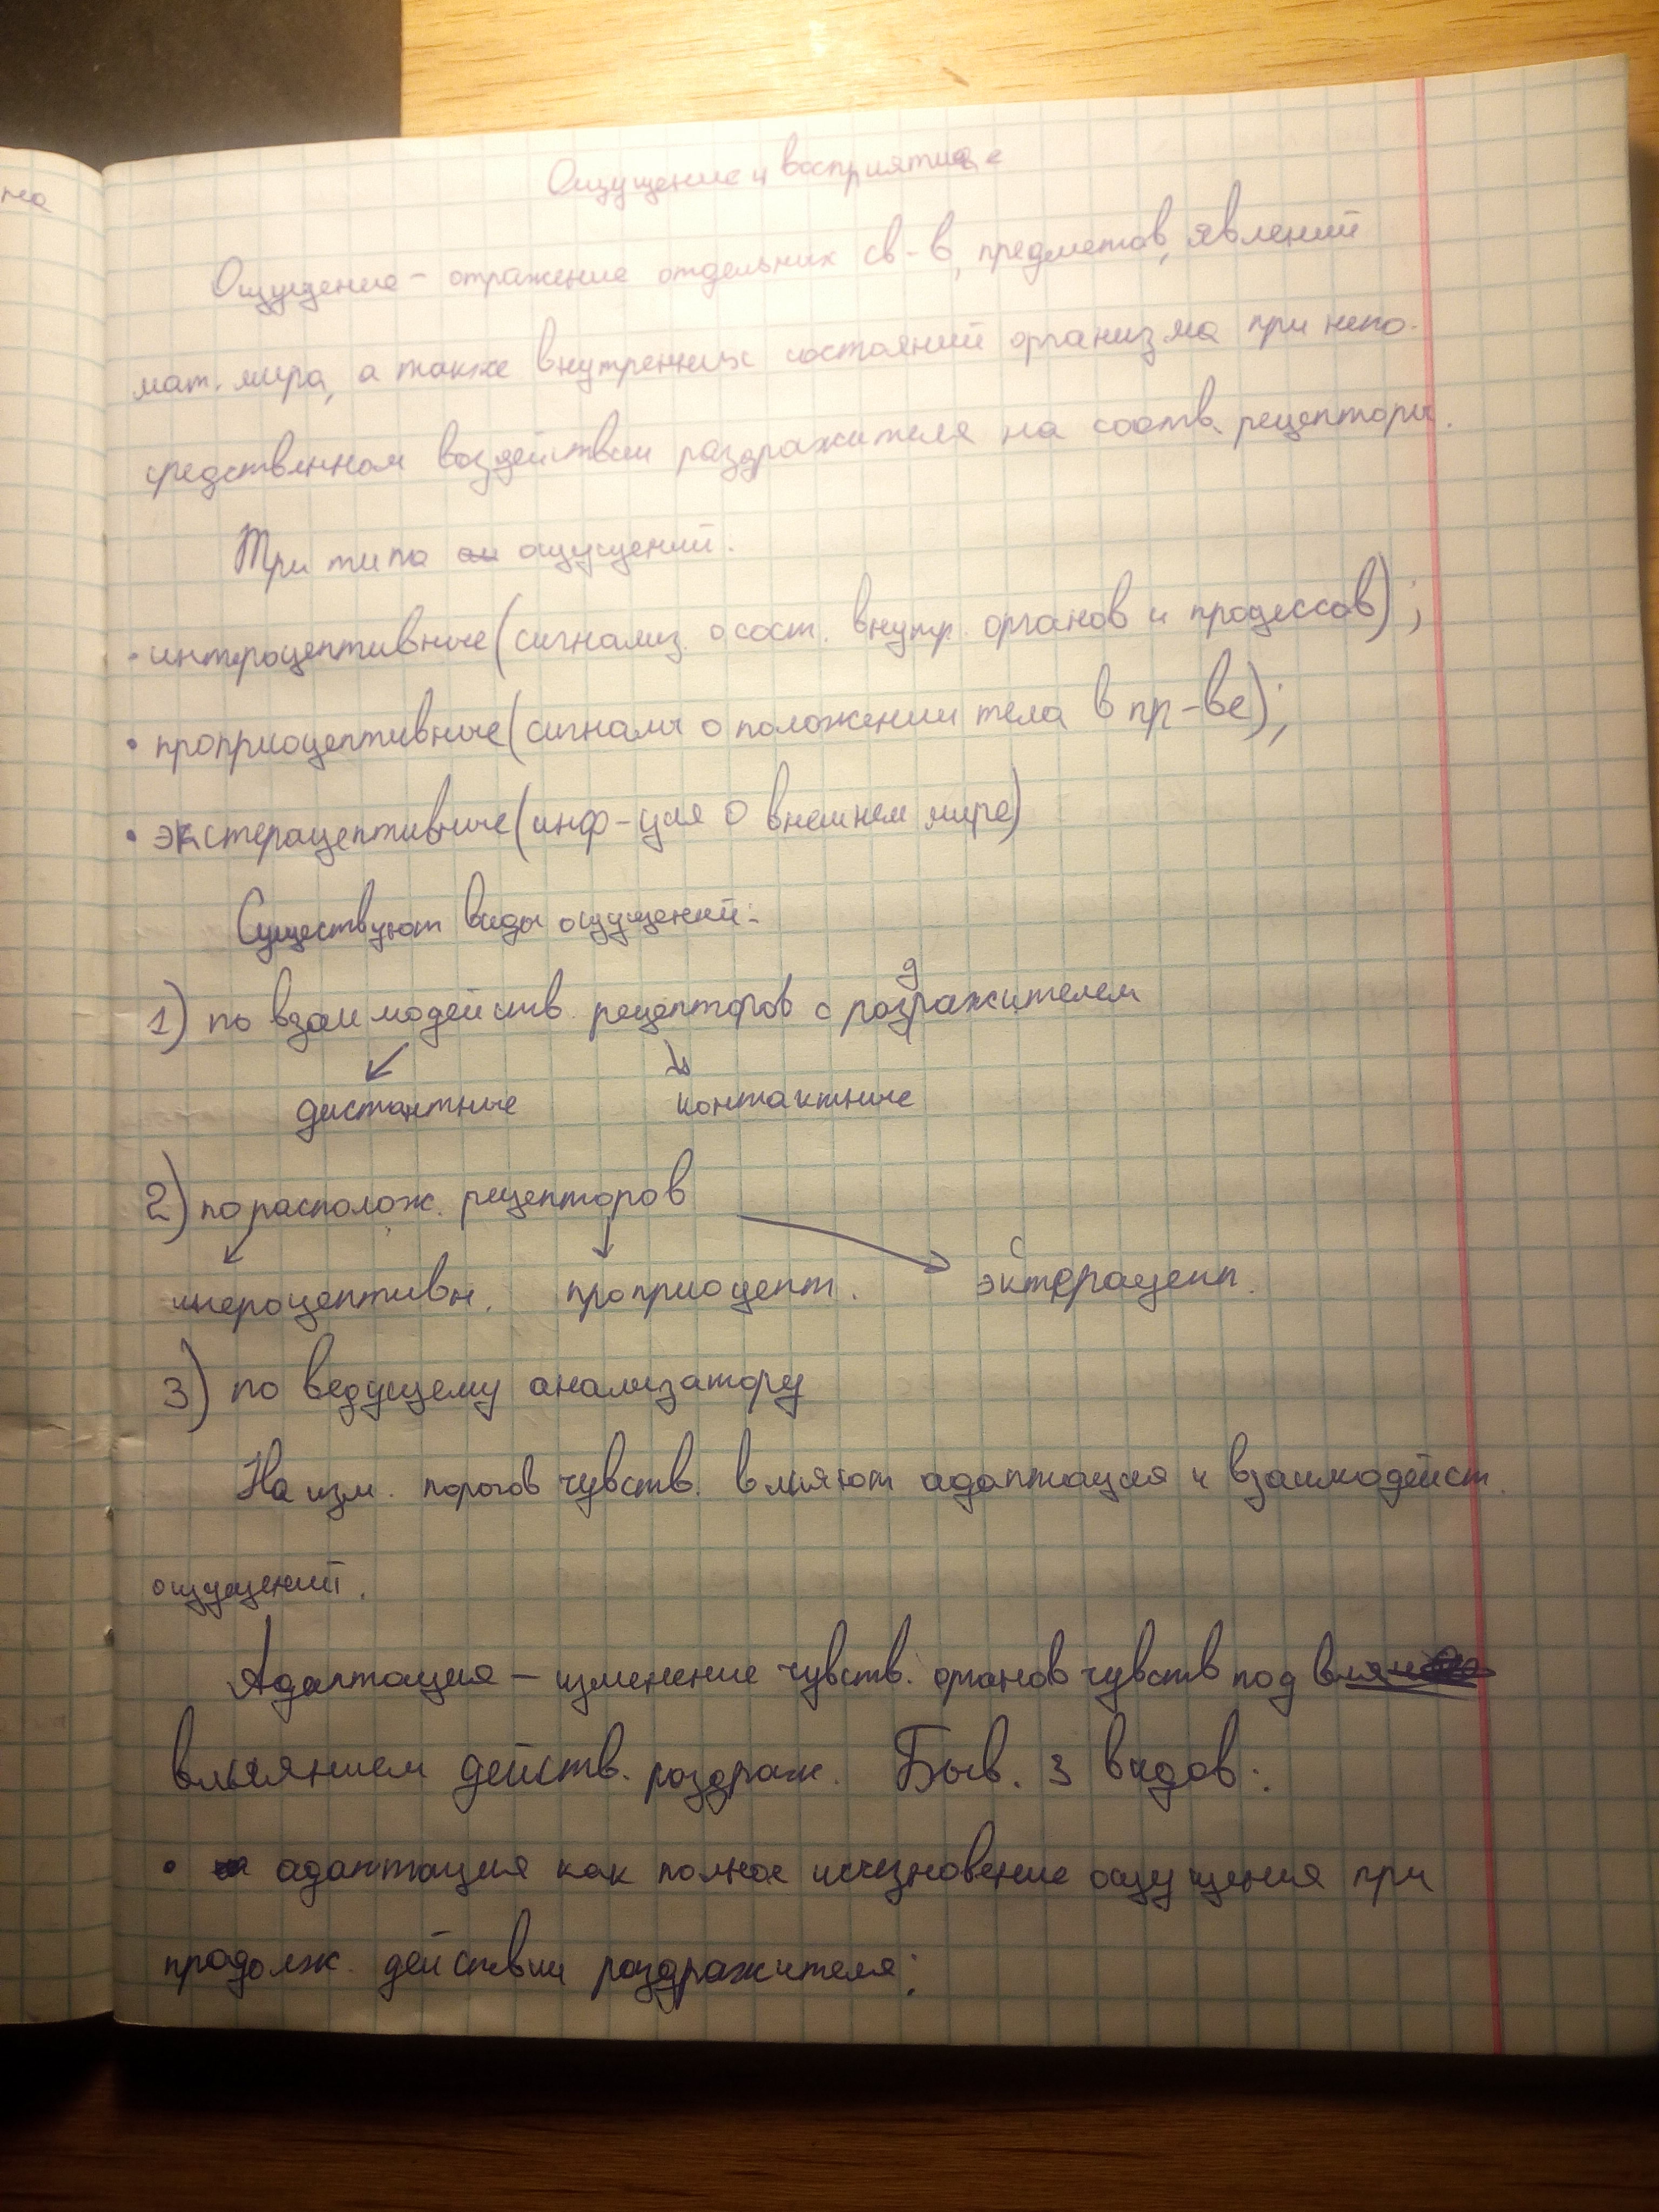 на
Ощущение и восприятие
Ощущение – отражение отдельных св-в, предметов, явлений
мат. мира, а также внутренних состояний организма при непо-
средственном воздействии раздражителя на соотв. рецепторы.
Три типа ощущений:
• интероцептивные (сигнализ. о сост. внутр. органов и процессов);
• проприоцептивные (сигналы о положении тела в пр-ве);
• экстерацептивные (инф-ция о внешнем мире)
Существуют виды ощущений:
1) по взаимодейств. рецепторов с раздражителем
дистантные контактные
2) по располож. рецепторов
инероцептивн. проприоцепт. эксторацепт.
3) по ведущему анализатору
На изм. порогов чувств. влияют адаптация и взаимодейст.
ощущений.
Адаптация – изменение чувств. органов чувств под
влиянием действ. раздраж. Быв. 3 видов:
• адаптация как полное исчезновение ощущения при
продолж. действии раздражителя;